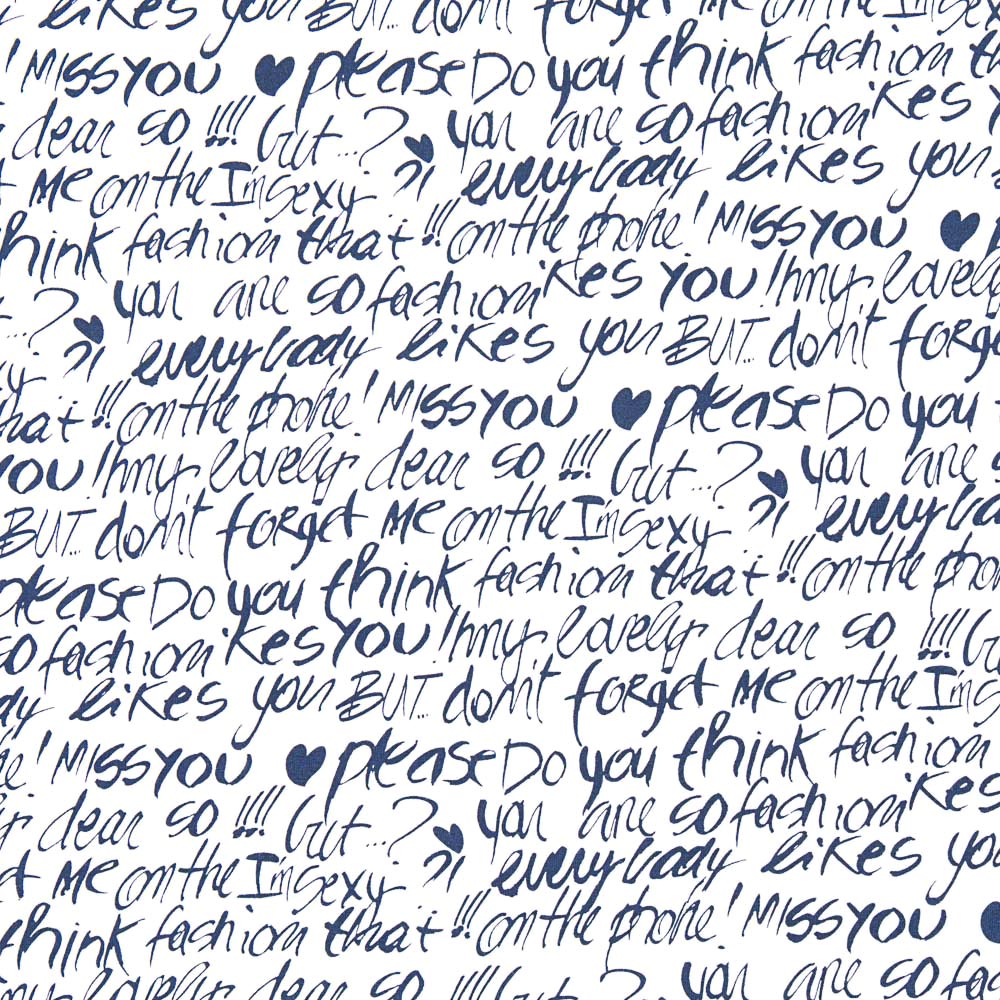 likes you BUT... don't forget Me on the I'm sexy
! MISS YOU ♥ please Do you think fashion
dear so !!!! but...? ♥ you are so fashion likes
Me on the I'm sexy ?! everybody likes you
think fashion that !!! on the phone! MISS YOU ♥
...? ♥ you are so fashion likes YOU !hmy lovely
?! everybody likes you BUT... don't forget
that !!! on the phone! MISS YOU ♥ please Do you
YOU !hmy lovely dear so !!!! but...? ♥ you are
BUT... don't forget Me on the I'm sexy ?! everybody
please Do you think fashion that !!! on the phone
so fashion likes YOU !hmy lovely dear so !!!!
likes you BUT... don't forget Me on the I'm
! MISS YOU ♥ please Do you think fashion
dear so !!!! but...? ♥ you are so fashion likes
Me on the I'm sexy ?! everybody likes you
think fashion that !!! on the phone! MISS YOU ♥
lovely dear so !!!! but...? you are so